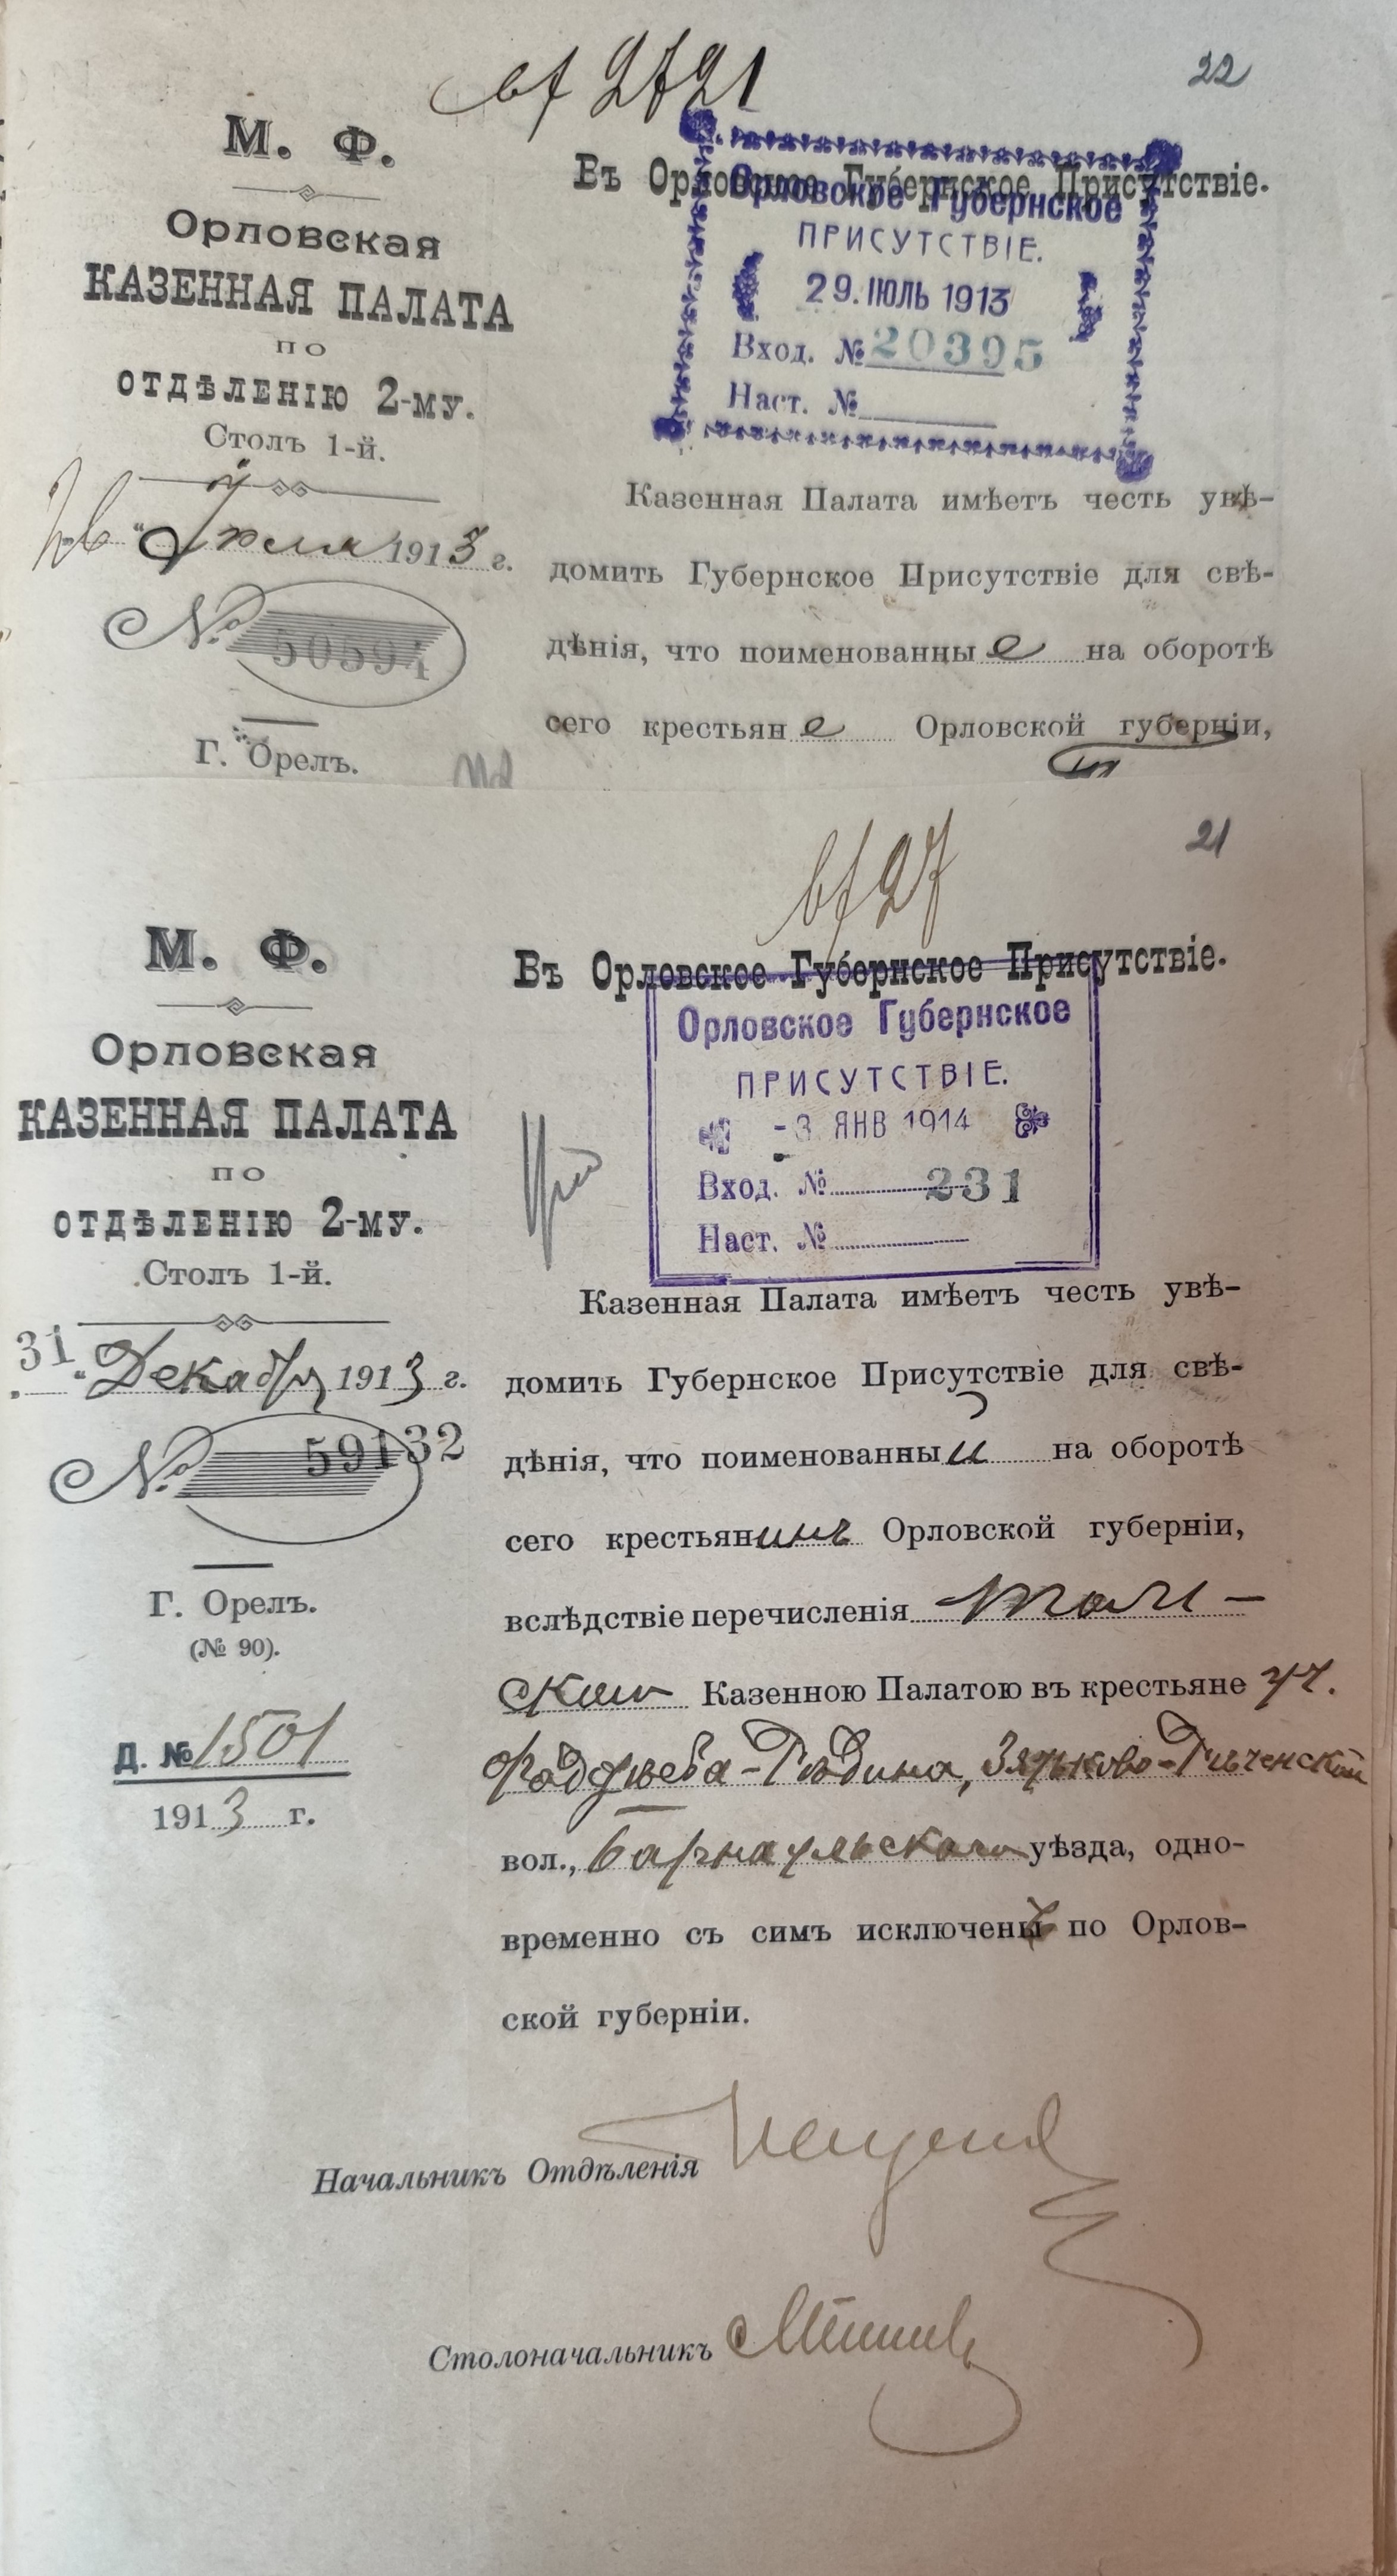 22
М. Ф.
Орловская
КАЗЕННАЯ ПАЛАТА
по
отдѣленію 2-му.
Столъ 1-й.
1913 г.
№ 50594
Г. Орелъ.
Въ Орловское Губернское Присутствіе.
Орловское Губернское
ПРИСУТСТВІЕ.
29. ІЮЛЬ 1913
Вход. № 20395
Наст. №
Казенная Палата имѣетъ честь увѣ-
домить Губернское Присутствіе для свѣ-
дѣнія, что поименованные на оборотѣ
сего крестьяне Орловской губерніи,
21
М. Ф.
Орловская
КАЗЕННАЯ ПАЛАТА
по
отдѣленію 2-му.
Столъ 1-й.
31 " Декабря 1913 г.
№ 59132
Г. Орелъ.
(№ 90).
Д. № 1501
1913 г.
Въ Орловское Губернское Присутствіе.
Орловское Губернское
ПРИСУТСТВІЕ.
-3 ЯНВ 1914
Вход. № 231
Наст. №
Казенная Палата имѣетъ честь увѣ-
домить Губернское Присутствіе для свѣ-
дѣнія, что поименованный на оборотѣ
сего крестьянинъ Орловской губерніи,
вслѣдствіе перечисленія Том-
скою Казенною Палатою въ крестьяне уч.
вол., Барнаульскаго уѣзда, одно-
временно съ симъ исключенъ по Орлов-
ской губерніи.
Начальникъ Отдѣленія
Столоначальникъ